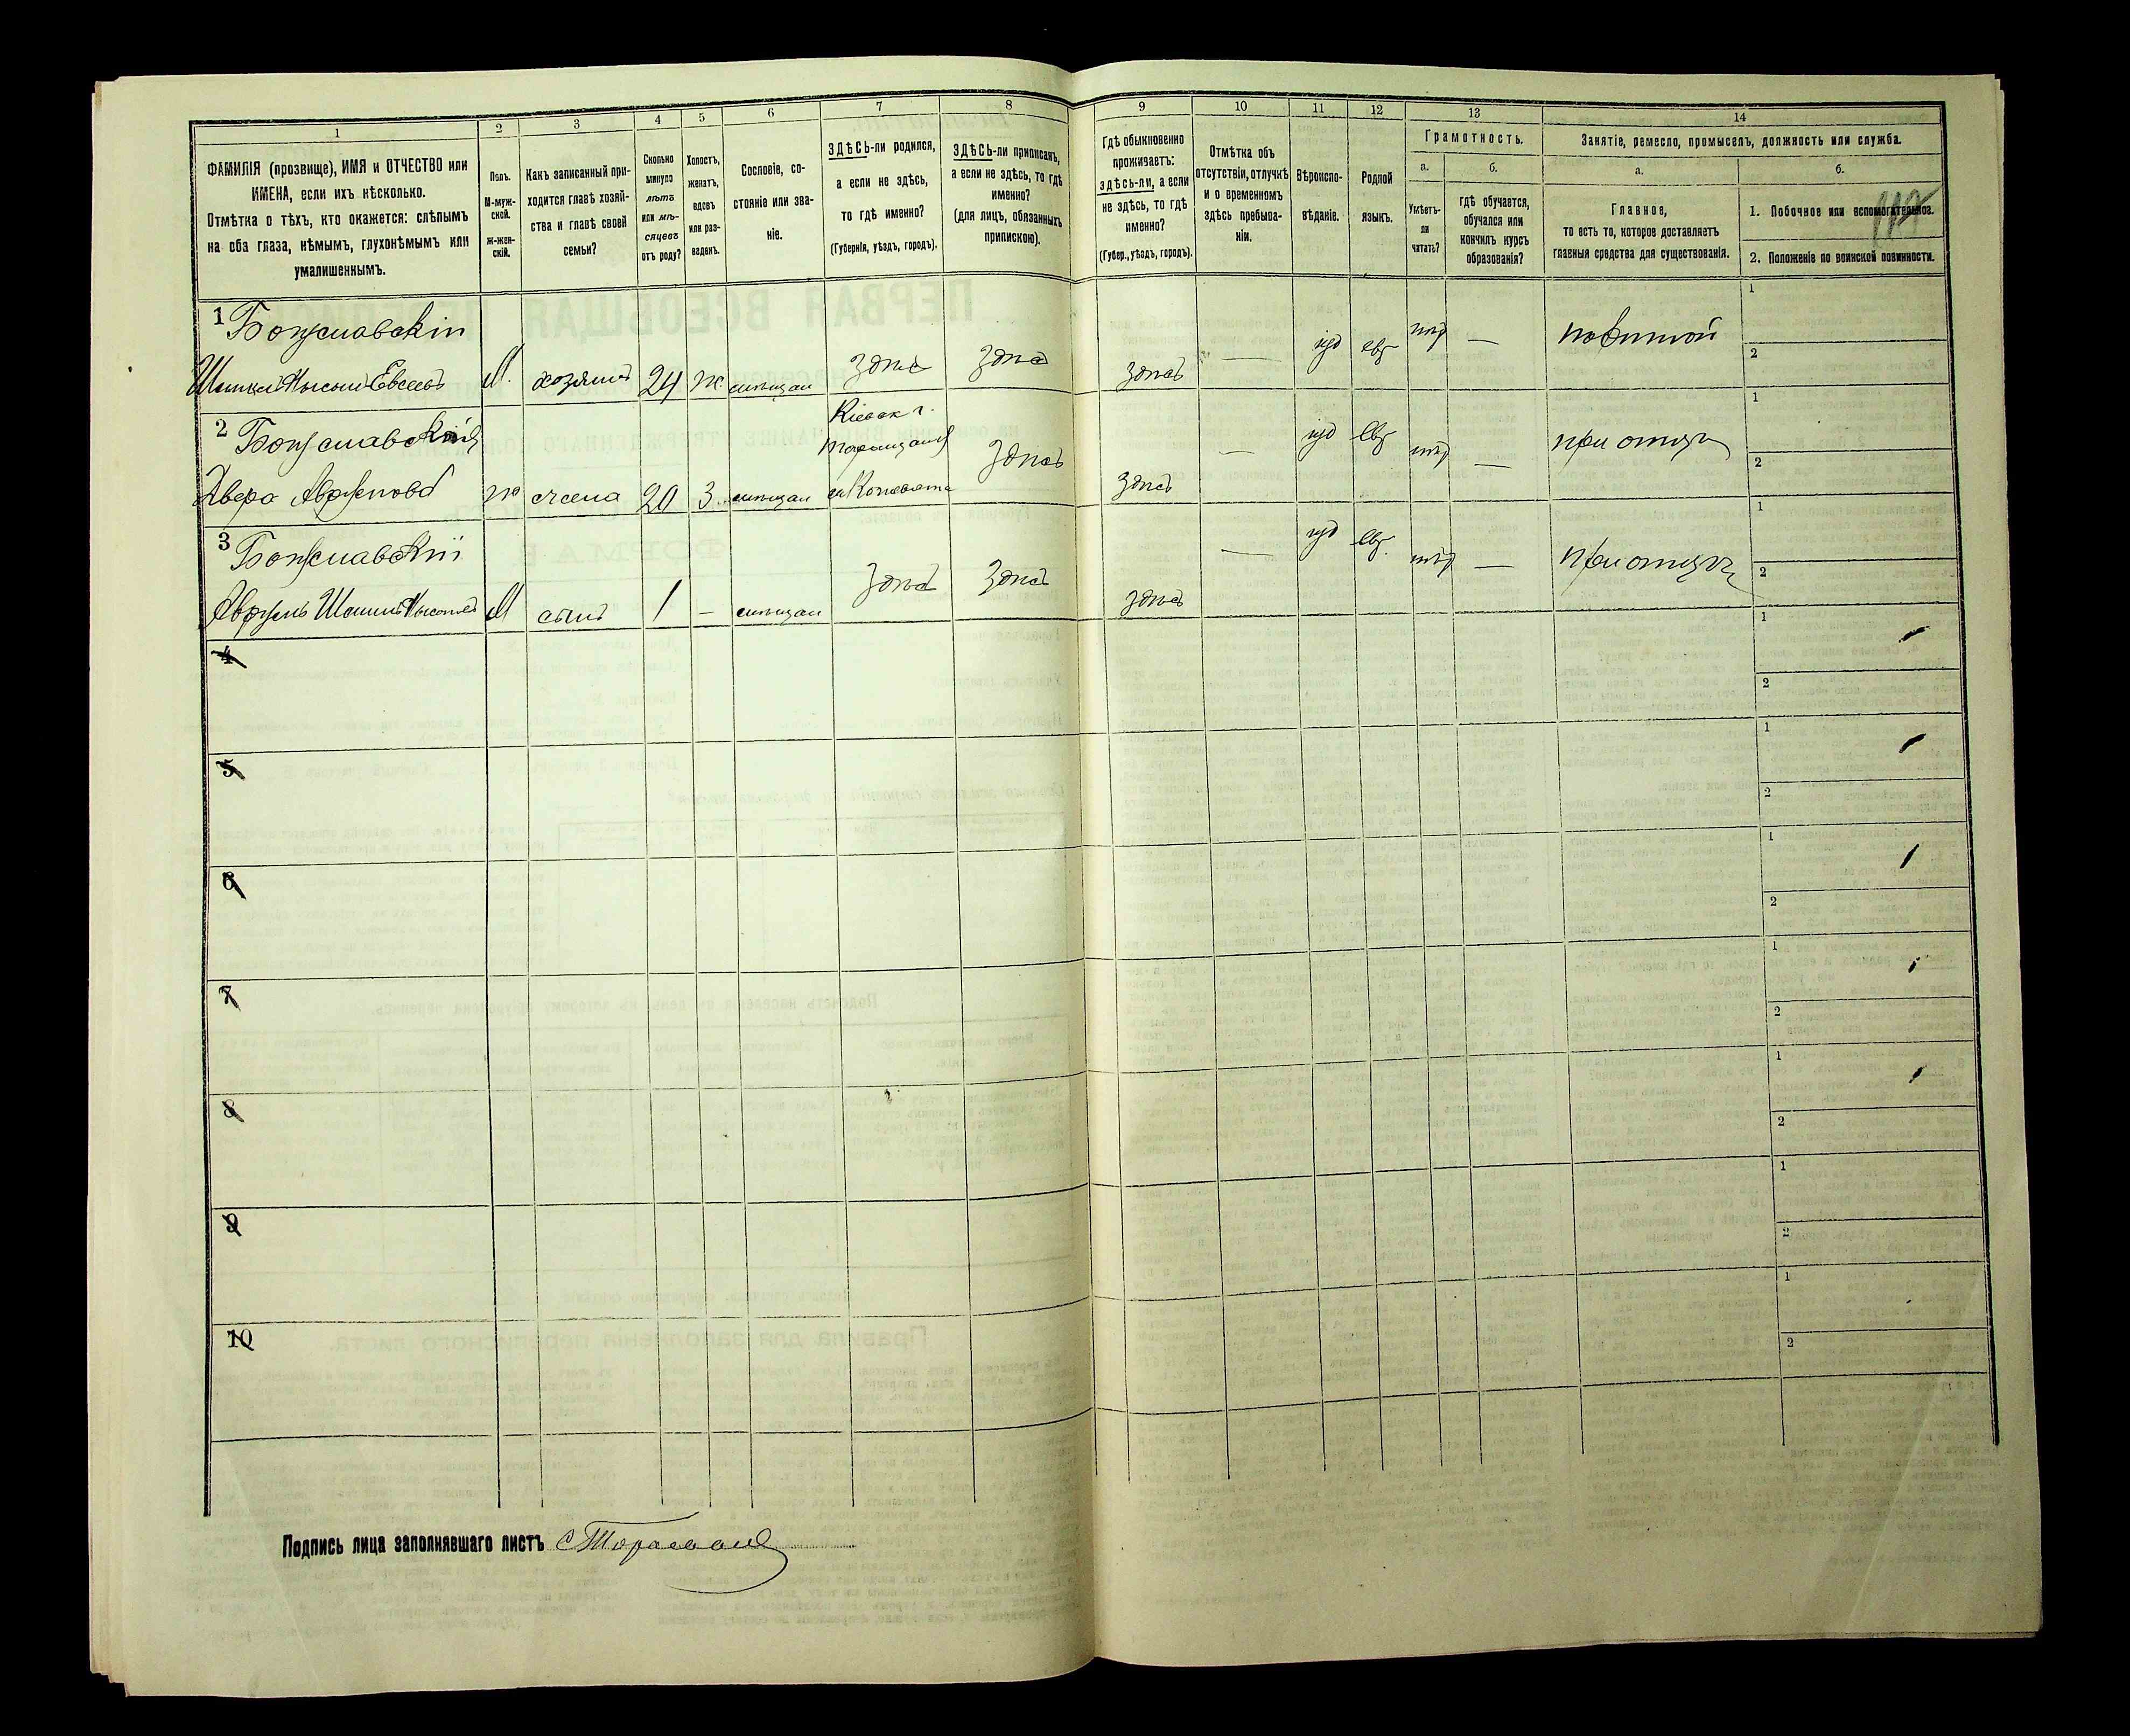 1
2
3
4
5
6
7
8
9
10
11
12
13
14
ФАМИЛІЯ (прозвище), ИМЯ и ОТЧЕСТВО или
ИМЕНА, если ихъ нѣсколько.
Отмѣтка о тѣхъ, кто окажется: слѣпымъ
на оба глаза, нѣмымъ, глухонѣмымъ или
умалишеннымъ.
Полъ.
М-муж-
ской.
Ж-жен-
скій.
Какъ записанный при-
ходится главѣ хозяй-
ства и главѣ своей
семьи?
Сколько
минуло
лѣтъ
или мѣ-
сяцевъ
отъ роду?
Холостъ,
женатъ,
вдовъ
или раз-
веденъ.
Сословіе, со-
стояніе или зва-
ніе.
ЗДѢСЬ-ли родился,
а если не здѣсь,
то гдѣ именно?
(Губернія, уѣздъ, городъ).
ЗДѢСЬ-ли приписанъ,
а если не здѣсь, то гдѣ
именно?
(для лицъ, обязанныхъ
припискою).
Гдѣ обыкновенно
проживаетъ:
здѣсь-ли, а если
не здѣсь, то гдѣ
именно?
(Губер., уѣздъ, городъ).
Отмѣтка объ
отсутствіи, отлучкѣ
и о временномъ
здѣсь пребыва-
ніи.
Вѣроиспо-
вѣданіе.
Родной
языкъ.
Грамотность.
а.
б.
Умѣетъ-
ли
читать?
гдѣ обучается,
обучался или
кончилъ курсъ
образованія?
Занятіе, ремесло, промыселъ, должность или служба.
а.
б.
Главное,
то есть то, которое доставляетъ
главныя средства для существованія.
1. Побочное или вспомогательное.
2. Положеніе по воинской повинности.
1 Богуславскій
Евсеевъ М. хозяинъ 24 ж мѣщан здѣсь здѣсь здѣсь — іуд евр нѣт —
1
2
2 Богуславская
Двера ж жена 20 З. мѣщан
Кіевск г.
таращан
здѣсь здѣсь — іуд евр нѣт — при отцѣ
1
2
3 Богуславскій
М сынъ 1 — мѣщан здѣсь здѣсь здѣсь — іуд евр. нѣт — при отцѣ
1
2
4
1
2
5
1
2
6
1
2
7
1
2
8
1
2
9
1
2
10
1
2
Подпись лица заполнявшаго листъ